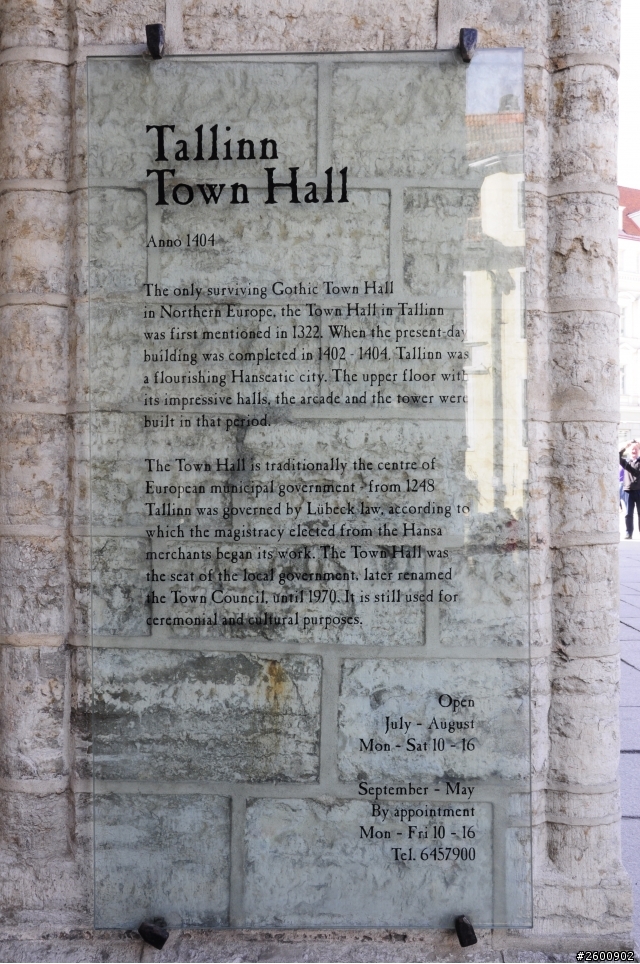 Tallinn
Town Hall
Anno 1404
The only surviving Gothic Town Hall
in Northern Europe, the Town Hall in Tallinn
was first mentioned in 1322. When the present-day
building was completed in 1402 - 1404, Tallinn was
a flourishing Hanseatic city. The upper floor with
its impressive halls, the arcade and the tower were
built in that period.
The Town Hall is traditionally the centre of
European municipal government - from 1248
Tallinn was governed by Lübeck law, according to
which the magistracy elected from the Hansa
merchants began its work. The Town Hall was
the seat of the local government, later renamed
the Town Council, until 1970. It is still used for
ceremonial and cultural purposes.
Open
July - August
Mon - Sat 10 - 16
September - May
By appointment
Mon - Fri 10 - 16
Tel. 6457900
#2600902